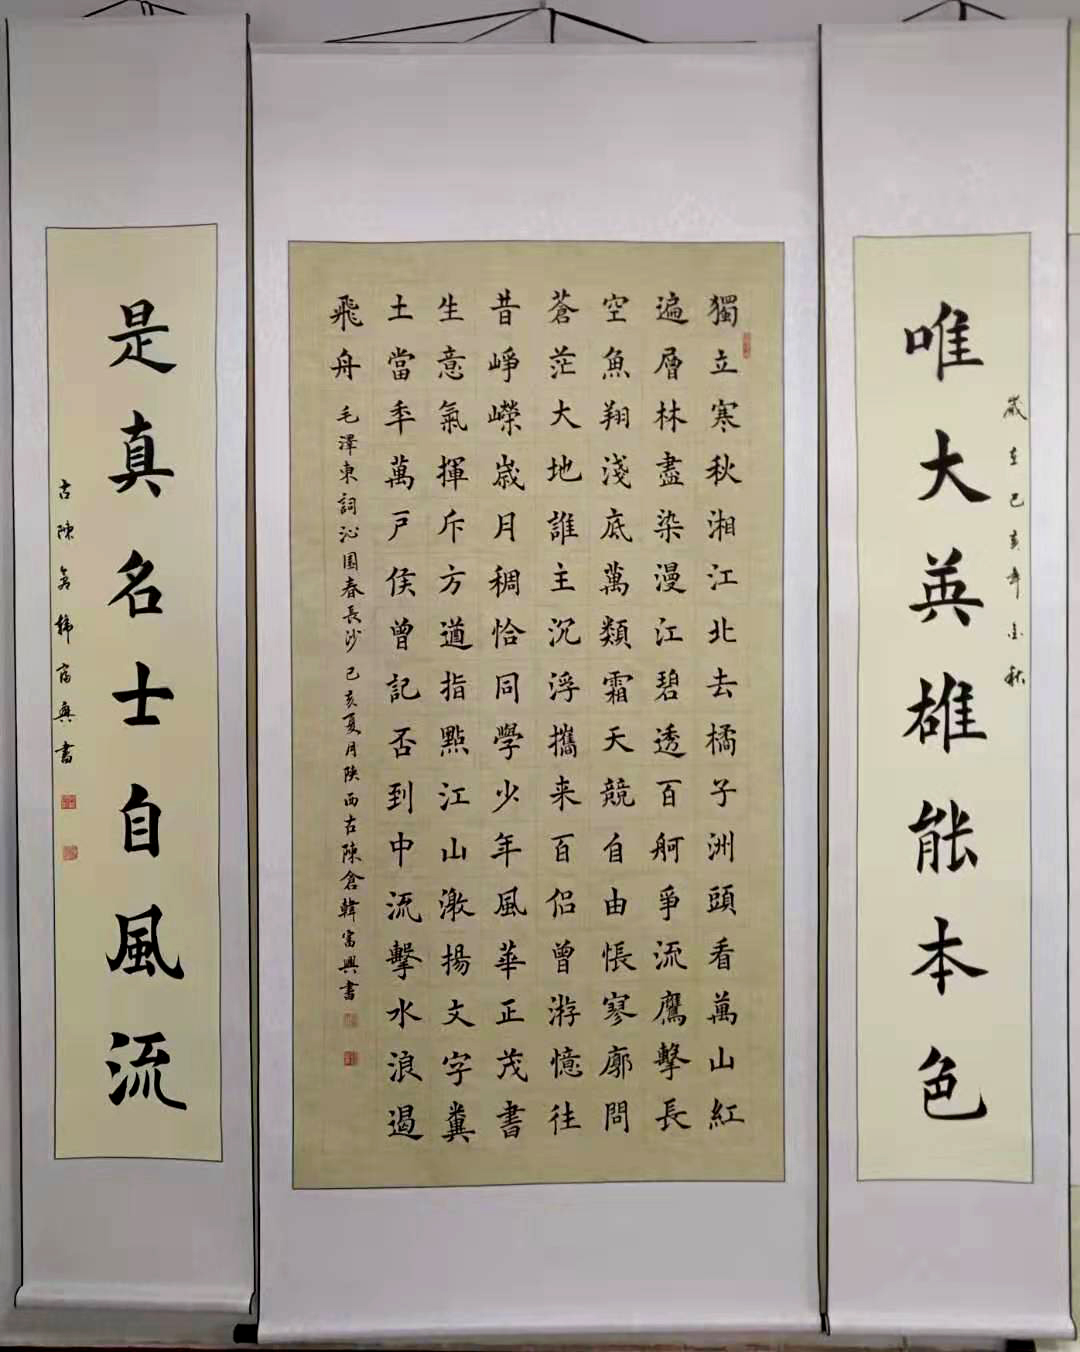 歲在己亥年金秋
唯大英雄能本色
獨立寒秋湘江北去橘子洲頭看萬山紅
遍層林盡染漫江碧透百舸爭流鷹擊長
空魚翔淺底萬類霜天競自由悵寥廓問
蒼茫大地誰主沉浮攜来百侣曾游憶往
昔崢嶸歲月稠恰同學少年風華正茂書
生意氣揮斥方遒指點江山激揚文字糞
土當年萬戶侯曾記否到中流擊水浪遏
飛舟 毛澤東詞沁園春長沙 己亥夏月陝西古陳倉韓富興書
是真名士自風流
古陳倉韓富興書